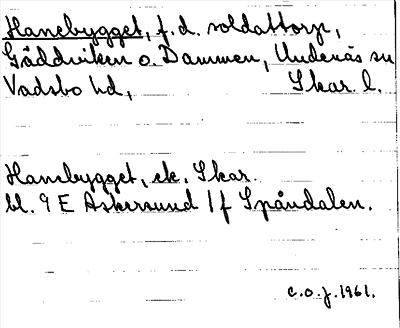 Hanebygget, f.d. soldattorp,
Gäddviken o. Dammen, Undenäs sn
Vadsbo hd, Skar. l.
Hanebygget, ek. Skar.
bl. 9 E Askersund 1 f Spåndalen.
C.O.J. 1961.